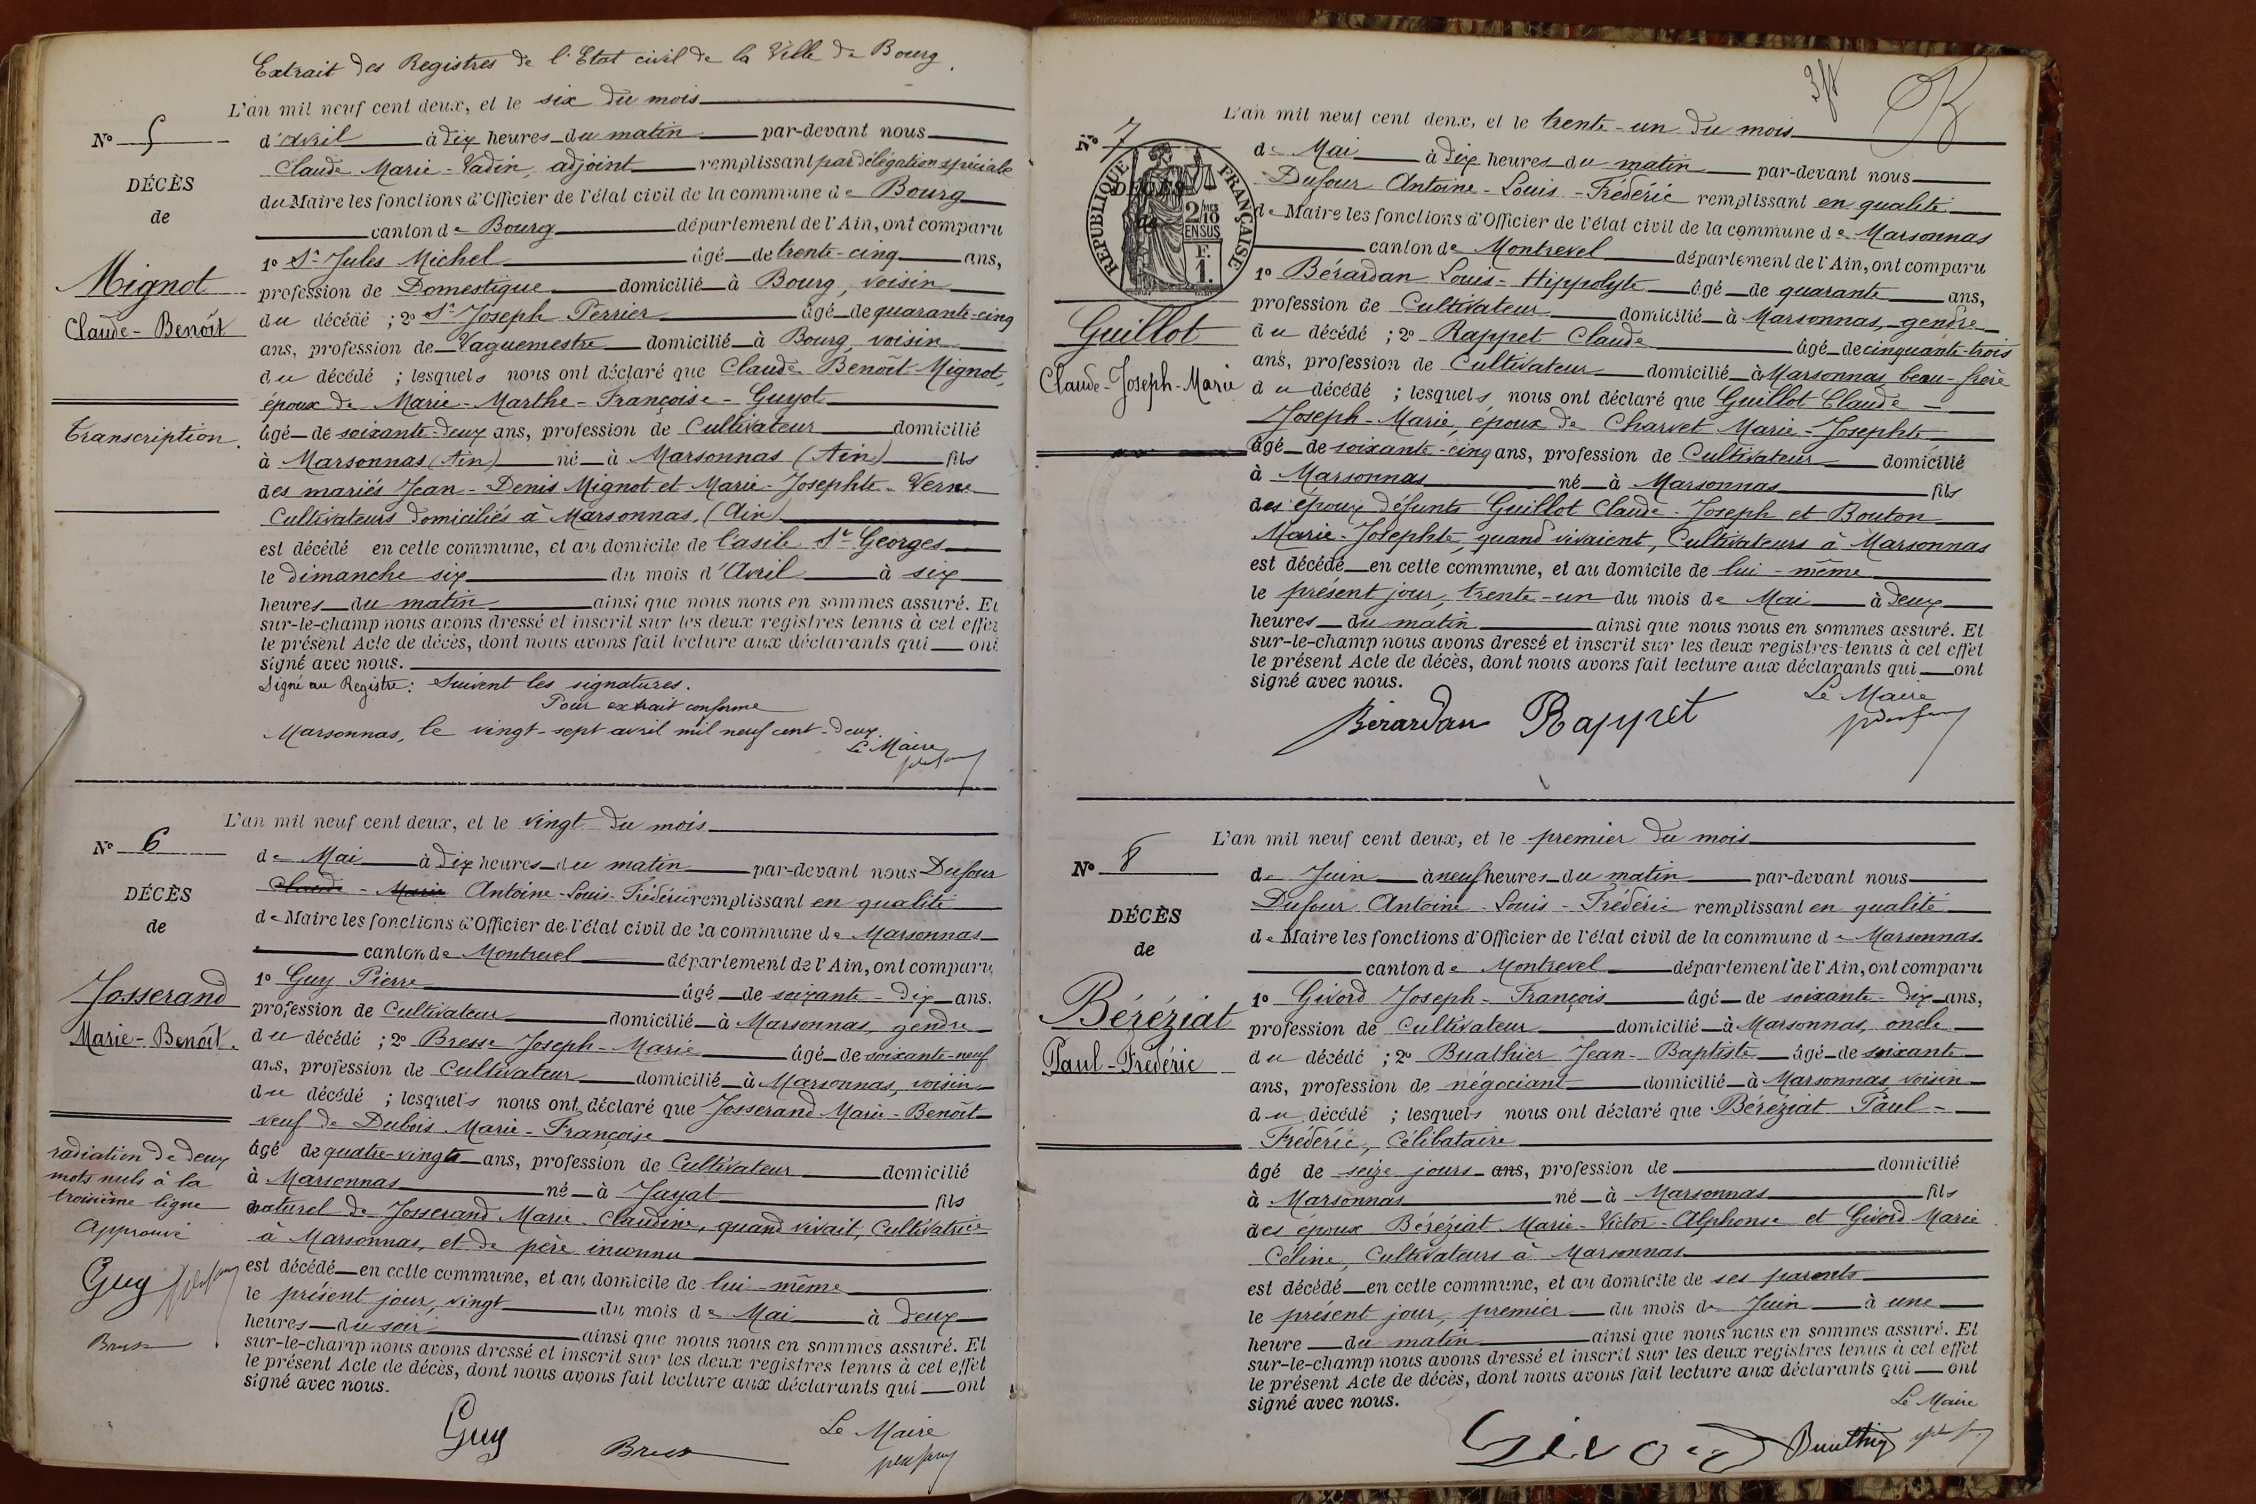 Extrait des Registres de l'Etat civil de la Ville de Bourg.
L'an mil neuf cent deux, et le six du mois
N° 5
d'avril à dix heures du matin par-devant nous
Claude Marie Vadin, adjoint remplissant par délégation spéciale
DÉCÈS
du Maire les fonctions d'Officier de l'état civil de la commune de Bourg
de
canton de Bourg département de l'Ain, ont comparu
1° Sr Jules Michel âgé de trente-cinq ans,
Mignot
profession de Domestique domicilié à Bourg, voisin
Claude-Benoît
du décédé ; 2° Sr Joseph Perrier âgé de quarante-cinq
ans, profession de Vaguemestre domicilié à Bourg, voisin
du décédé ; lesquels nous ont déclaré que Claude Benoît Mignot,
époux de Marie-Marthe-Françoise-Guyot
Transcription.
âgé de soixante-deux ans, profession de Cultivateur domicilié
à Marsonnas (Ain) né à Marsonnas (Ain) fils
des mariés Jean-Denis Mignot et Marie-Josephte Verne
Cultivateurs domiciliés à Marsonnas, (Ain)
est décédé en cette commune, et au domicile de l'asile St Georges
le dimanche six du mois d'Avril à six
heures du matin ainsi que nous nous en sommes assuré. Et
sur-le-champ nous avons dressé et inscrit sur les deux registres tenus à cet effet
le présent Acte de décès, dont nous avons fait lecture aux déclarants qui ont
signé avec nous.
Signé au Registre: Suivent les signatures.
Pour extrait conforme
Marsonnas, le vingt-sept avril mil neuf cent-deux.
Le Maire
L'an mil neuf cent deux, et le vingt du mois
N° 6
de Mai à dix heures du matin par-devant nous Dufour
Claude-Marie Antoine-Louis-Frédéric remplissant en qualité
DÉCÈS
de Maire les fonctions d'Officier de l'état civil de la commune de Marsonnas
de
canton de Montrevel département de l'Ain, ont comparu
1° Guy Pierre âgé de soixante-dix ans.
Josserand
profession de Cultivateur domicilié à Marsonnas, gendre
Marie-Benoît.
du décédé ; 2° Bresse Joseph-Marie âgé de soixante-neuf
ans, profession de Cultivateur domicilié à Marsonnas, voisin
du décédé ; lesquels nous ont déclaré que Josserand Marie-Benoît
veuf de Dubois Marie-Françoise
radiation de deux
mots nuls à la
troisième ligne
Approuvé
Guy
Bresse
âgé de quatre-vingts ans, profession de Cultivateur domicilié
à Marsonnas né à Jayat fils
naturel de Josserand Marie-Claudine, quand vivait, Cultivatrice
à Marsonnas, et de père inconnu
est décédé en cette commune, et au domicile de lui-même
le présent jour, vingt du mois de Mai à deux
heures du soir ainsi que nous nous en sommes assuré. Et
sur-le-champ nous avons dressé et inscrit sur les deux registres tenus à cet effet
le présent Acte de décès, dont nous avons fait lecture aux déclarants qui ont
signé avec nous.
Guy
Bresse
Le Maire
L'an mil neuf cent deux, et le trente-un du mois
N° 7
RÉPUBLIQUE FRANÇAISE
2/10 EN SUS
F. 1.
de Mai à dix heures du matin par-devant nous
Dufour Antoine-Louis-Frédéric remplissant en qualité
DÉCÈS
de Maire les fonctions d'Officier de l'état civil de la commune de Marsonnas
de
canton de Montrevel département de l'Ain, ont comparu
1° Bérardan Louis-Hippolyte âgé de quarante ans,
Guillot
Claude-Joseph-Marie
profession de Cultivateur domicilié à Marsonnas, gendre
du décédé ; 2° Rappet Claude âgé de cinquante-trois
ans, profession de Cultivateur domicilié à Marsonnas, beau-frère
du décédé ; lesquels nous ont déclaré que Guillot Claude-
Joseph-Marie, époux de Charvet Marie-Josephte
âgé de soixante-cinq ans, profession de Cultivateur domicilié
à Marsonnas né à Marsonnas fils
des époux défunts Guillot Claude-Joseph et Bouton
Marie-Josephte, quand vivaient, Cultivateurs à Marsonnas
est décédé en cette commune, et au domicile de lui-même
le présent jour, trente-un du mois de Mai à deux
heures du matin ainsi que nous nous en sommes assuré. Et
sur-le-champ nous avons dressé et inscrit sur les deux registres tenus à cet effet
le présent Acte de décès, dont nous avons fait lecture aux déclarants qui ont
signé avec nous.
Le Maire
Bérardan Rappet
L'an mil neuf cent deux, et le premier du mois
N° 8
de Juin à neuf heures du matin par-devant nous
Dufour Antoine-Louis-Frédéric remplissant en qualité
DÉCÈS
de Maire les fonctions d'Officier de l'état civil de la commune de Marsonnas
de
canton de Montrevel département de l'Ain, ont comparu
1° Givord Joseph-François âgé de soixante-dix ans,
Béréziat
Paul-Frédéric
profession de Cultivateur domicilié à Marsonnas, oncle
du décédé ; 2° Buathier Jean-Baptiste âgé de soixante
ans, profession de négociant domicilié à Marsonnas voisin
du décédé ; lesquels nous ont déclaré que Béréziat Paul-
Frédéric, Célibataire
âgé de seize jours ans, profession de domicilié
à Marsonnas né à Marsonnas fils
des époux Béréziat Marie-Victor-Alphonse et Givord Marie
Céline, Cultivateurs à Marsonnas
est décédé en cette commune, et au domicile de ses parents
le présent jour, premier du mois de Juin à une
heure du matin ainsi que nous nous en sommes assuré. Et
sur-le-champ nous avons dressé et inscrit sur les deux registres tenus à cet effet
le présent Acte de décès, dont nous avons fait lecture aux déclarants qui ont
signé avec nous.
Le Maire
Givord Buathier